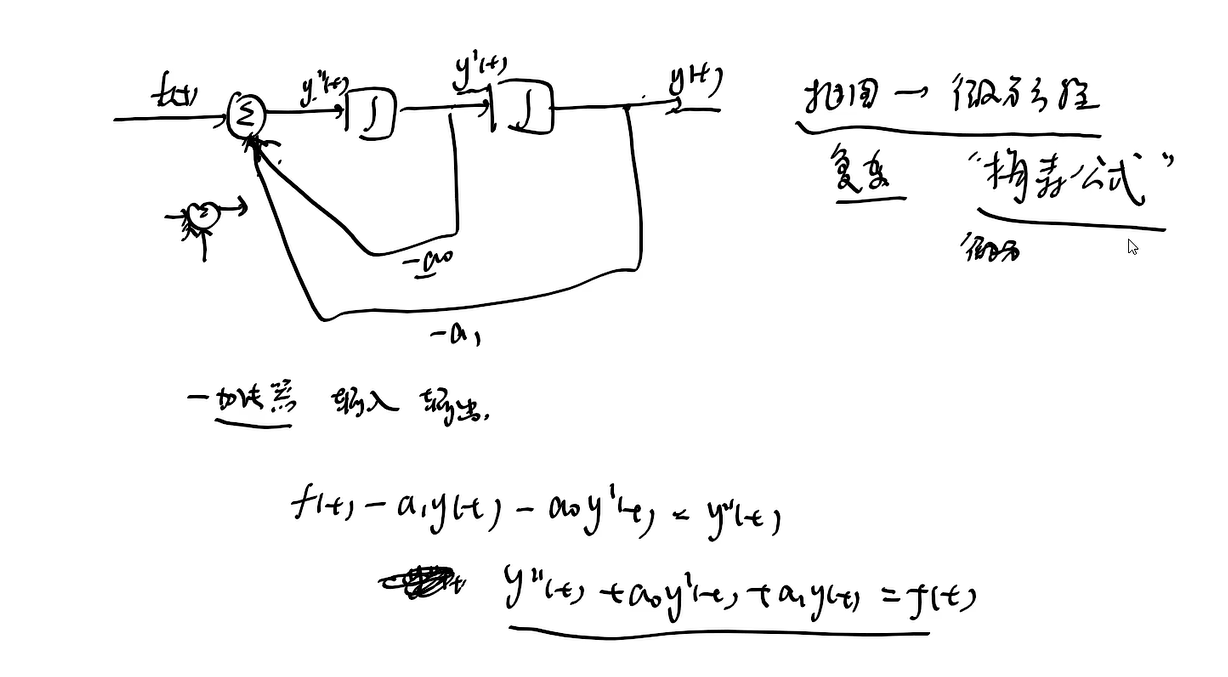 f(t) Σ y''(t) ∫ y'(t) ∫ y(t)
框图 → 微分方程
复杂 “梅森公式”
Σ
微分
-a₀
-a₁
一加法器 输入 输出.
f(t) - a₁y(t) - a₀y'(t) = y''(t)
y''(t) + a₀y'(t) + a₁y(t) = f(t)